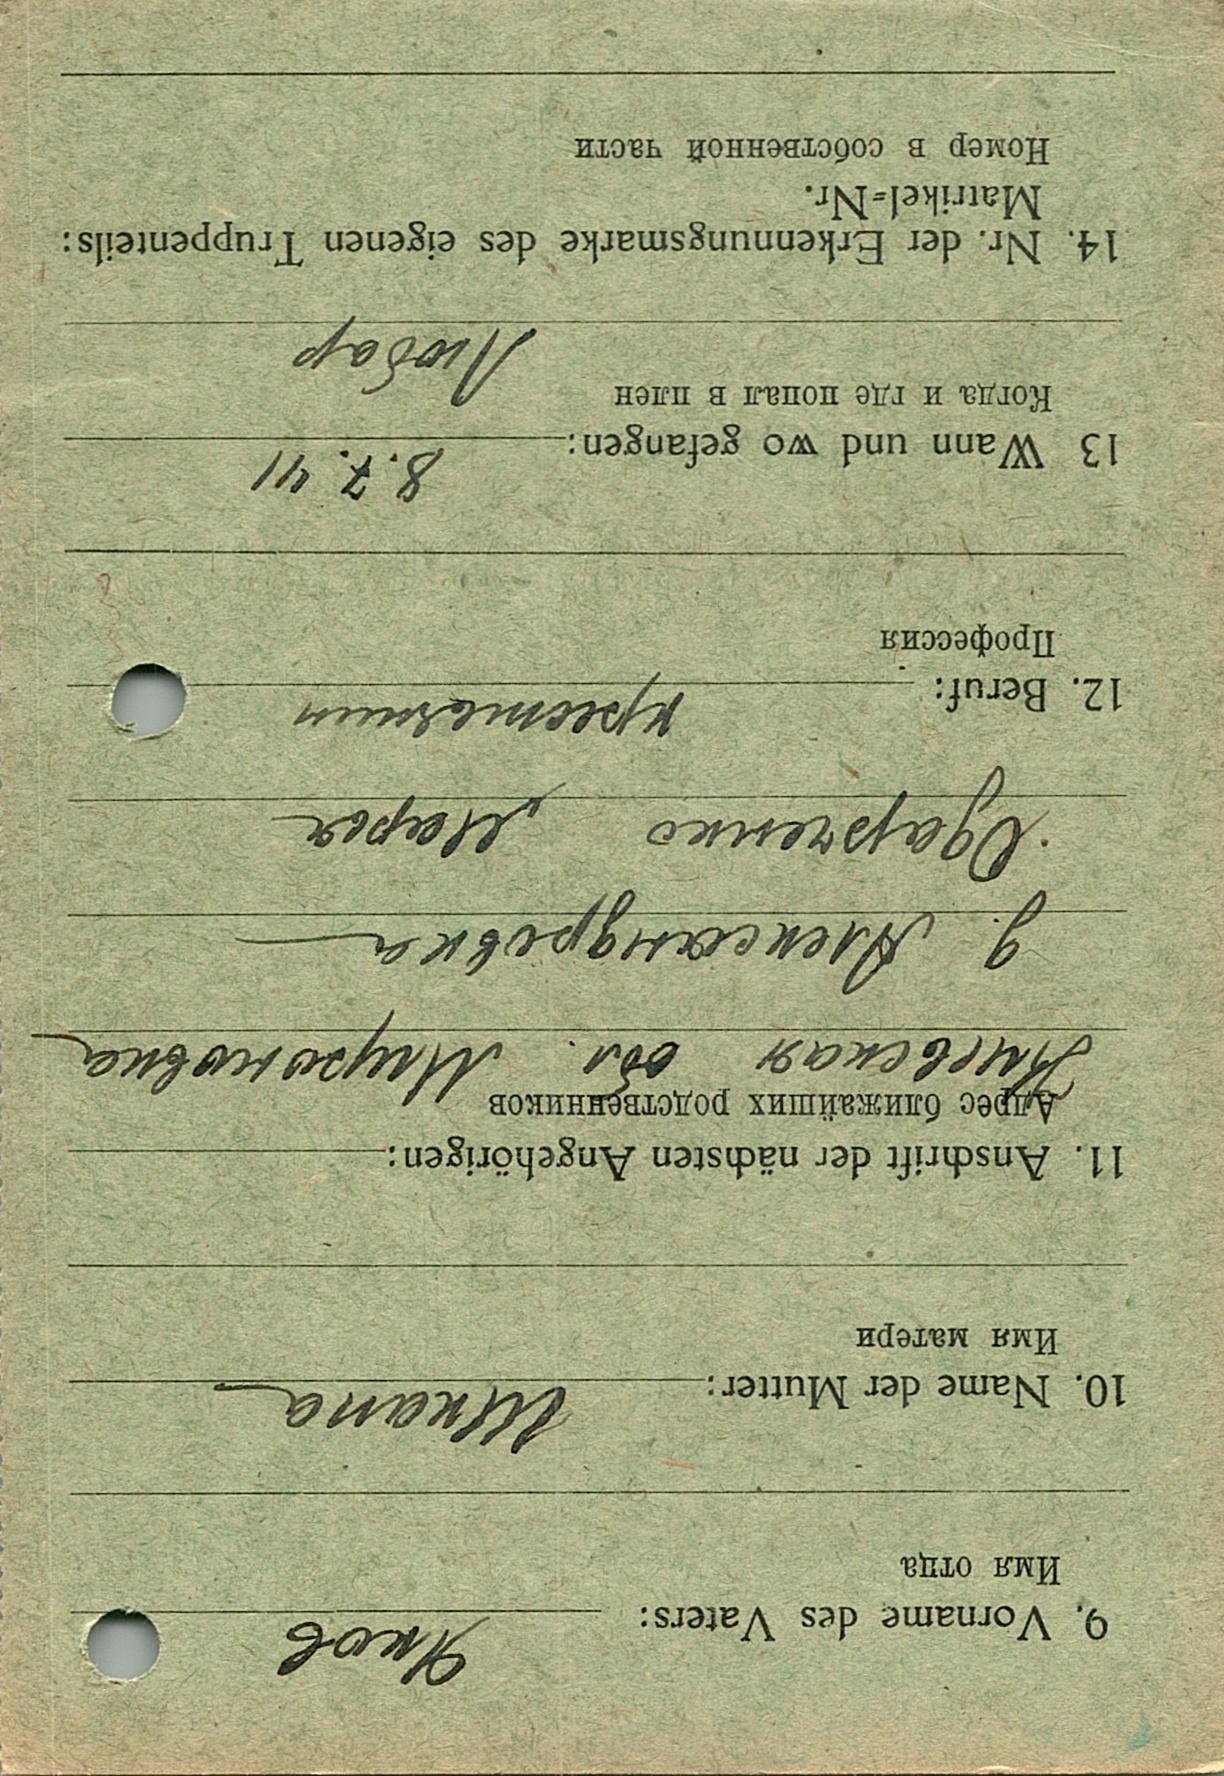 9. Vorname des Vaters: Яков
Имя отца
10. Name der Mutter: Шкапа
Имя матери
11. Anschrift der nächsten Angehörigen:
Адрес ближайших родственников
Киевская обл. Мироновка
д. Александровка
Одарченко Мария
12. Beruf: крестьянин
Профессия
13 Wann und wo gefangen: 8.7.41
Когда и где попал в плен
Любар
14. Nr. der Erkennungsmarke des eigenen Truppenteils:
Matrikel=Nr.
Номер в собственной части